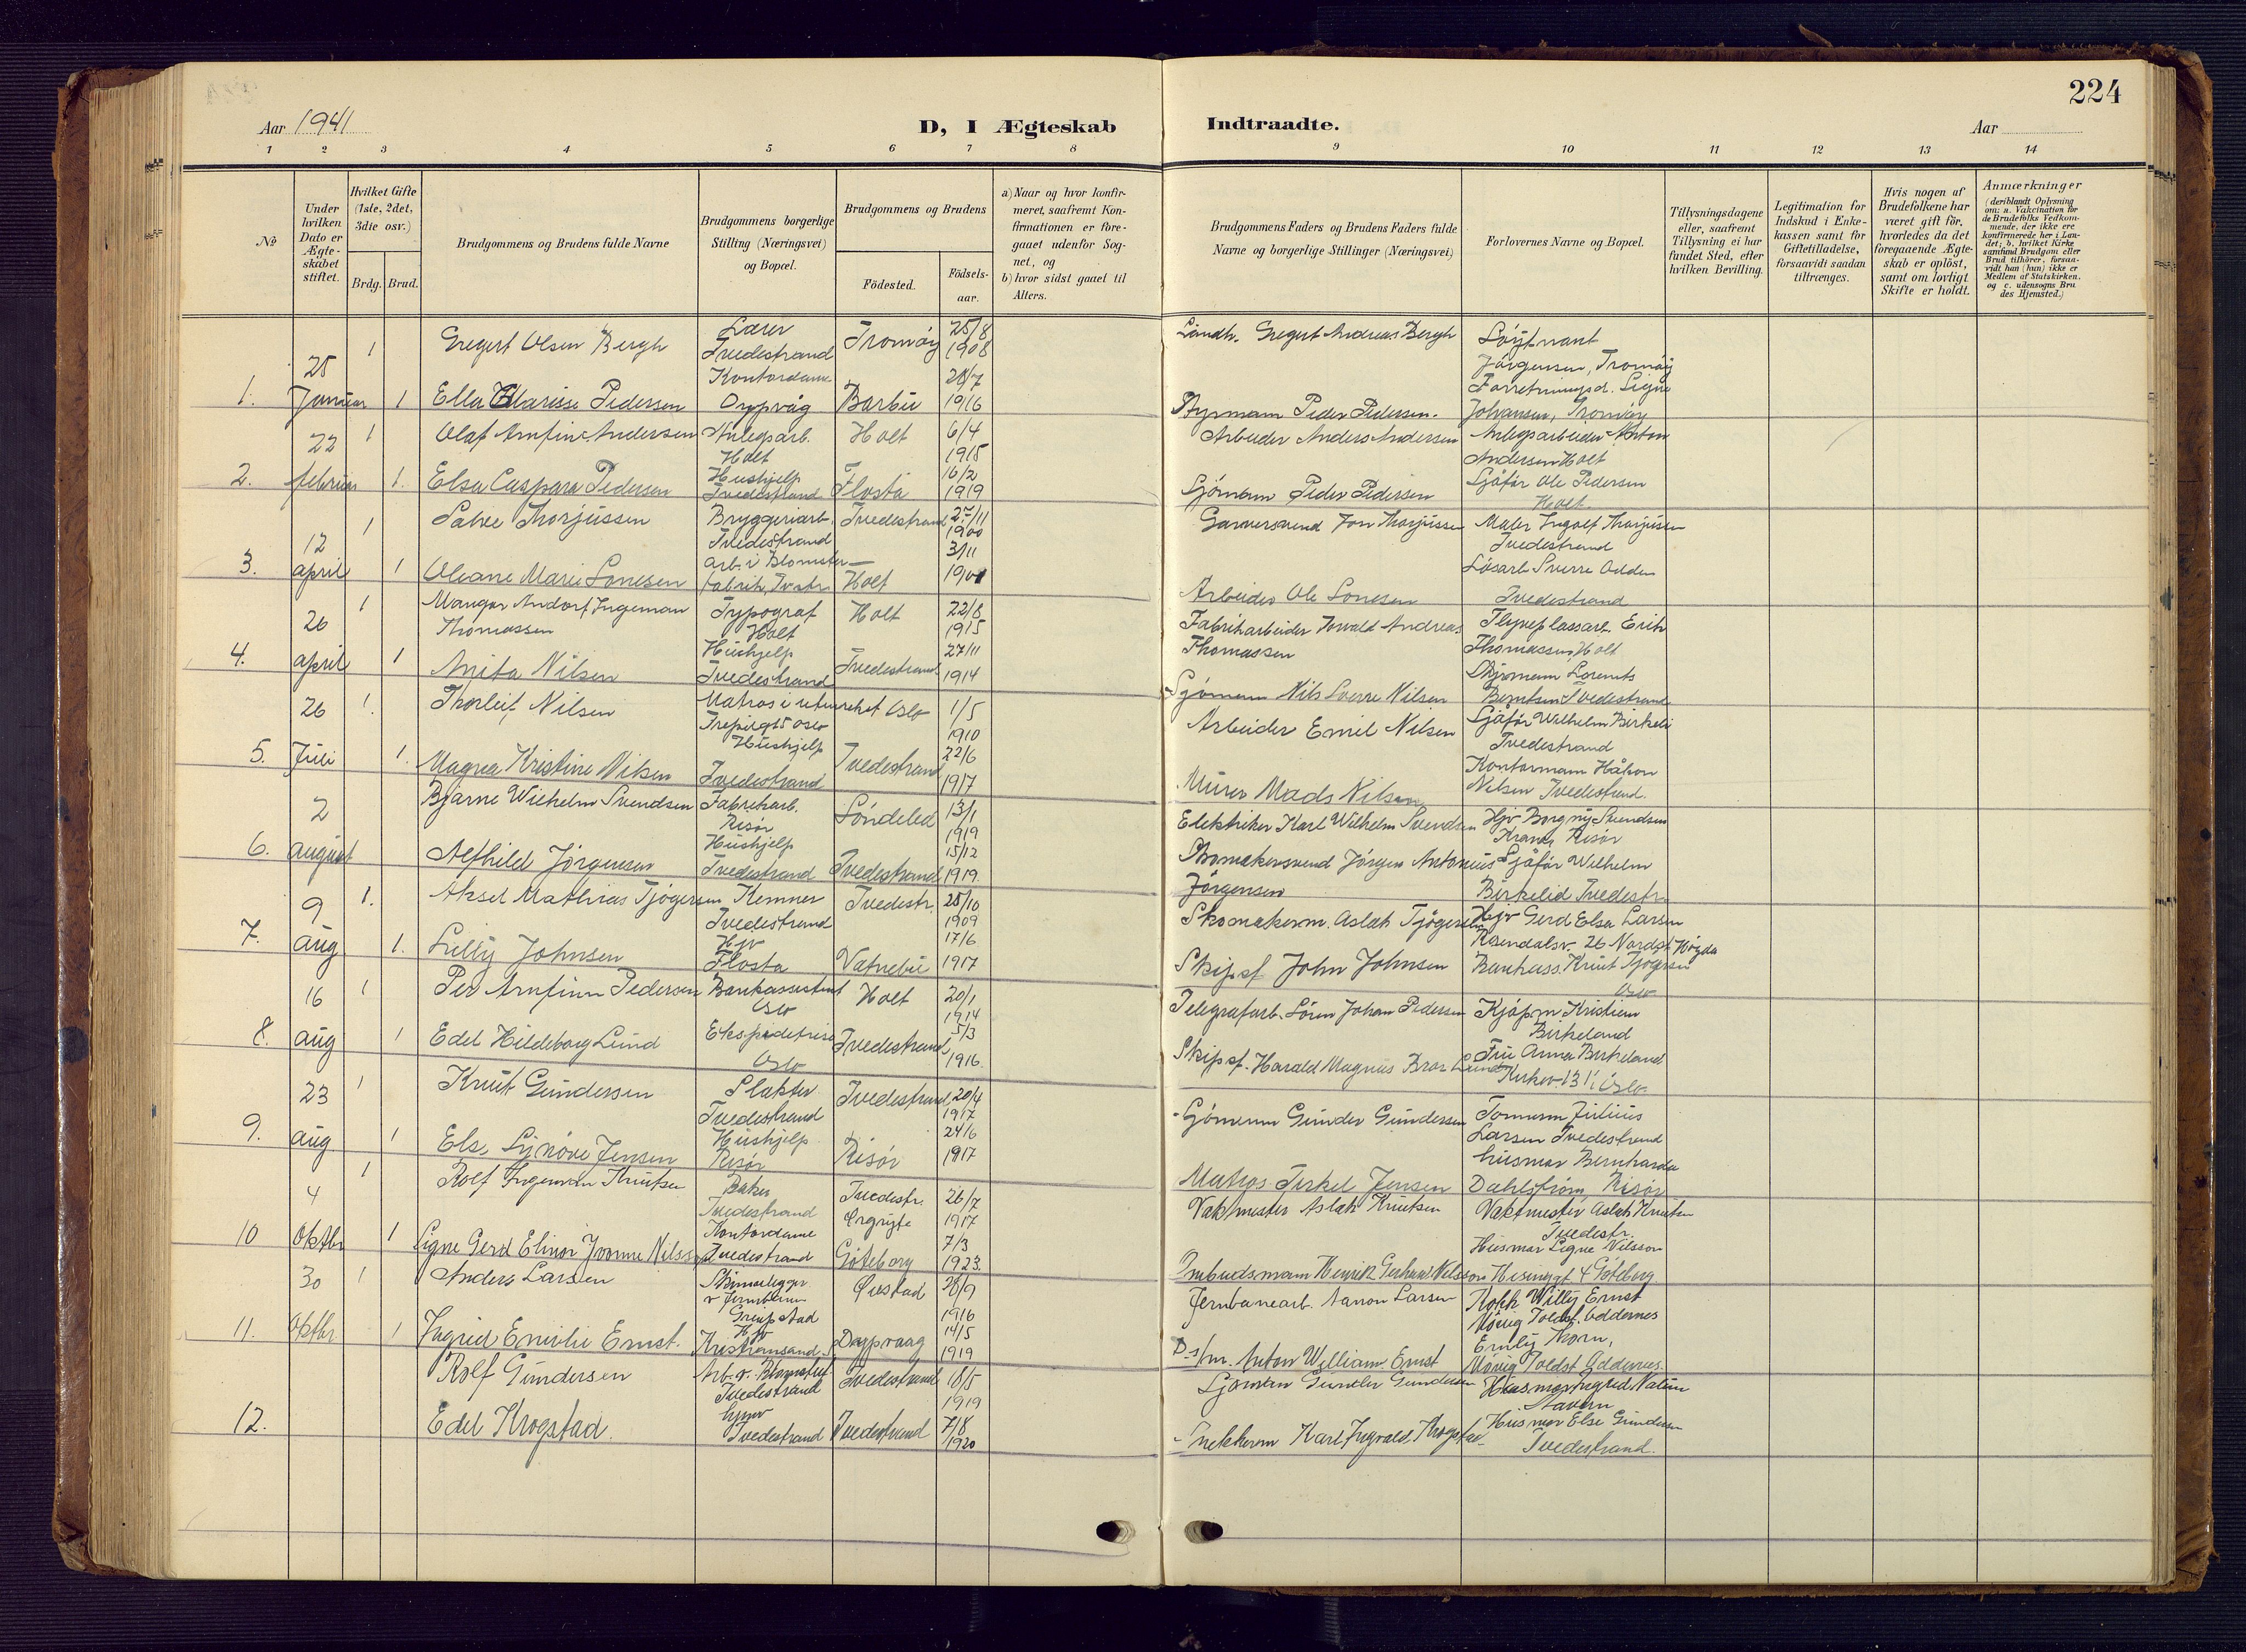 224
Aar 1941
D, I Ægteskab
Indtraadte.
Aar
1 2 3 4 5 6 7 8 9 10 11 12 13 14
No
Under hvilken Dato er Ægteskabet stiftet.
Hvilket Gifte (1ste, 2det, 3die osv.)
Brdg. Brud.
Brudgommens og Brudens fulde Navne
Brudgommens borgerlige Stilling (Næringsvei) og Bopæl.
Brudgommens og Brudens
Födested.
Födsels-aar.
a) Naar og hvor konfirmeret, saafremt Konfirmationen er foregaaet udenfor Sognet, og
b) hvor sidst gaaet til Alters.
Brudgommens Faders og Brudens Faders fulde Navne og borgerlige Stillinger (Næringsvei)
Forlovernes Navne og Bopæl.
Tillysningsdagene eller, saafremt Tillysning ei har fundet Sted, efter hvilken Bevilling.
Legitimation for Indskud i Enkekassen samt for Giftetilladelse, forsaavidt saadan tiltrænges.
Hvis nogen af Brudefolkene har været gift för, hvorledes da det foregaaende Ægteskab er oplöst, samt om lovligt Skifte er holdt.
Anmærkninger
(deriblandt Oplysning om: a. Vakcination for de Brudefolks Vedkommende, der ikke ere konfirmerede her i Landet; b. hvilket Kirkesamfund Brudgom eller Brud tilhörer, forsaavidt han (hun) ikke er Medlem af Statskirken, og c. udensogns Brudes Hjemsted.)
1. 25 Januar 1 Gregert Olsen Bergh Lærer Tvedestrand Tromöy 25/8 1908 Landh. Gregert Andreas Bergh Löytnant Jörgensen, Tromöy
1 Ella Marisse Pedersen Kontordame Dypvåg Barbu 28/7 1916 Styrmann Peder Pedersen. Forretningsd. Signe Johansen, Tromöy
2. 22 februar 1 Olaf Arnfinn Andersen Anlegsarb. Holt Holt 6/4 1915 Arbeider Anders Andersen Anlegsarbeider Anton Andersen Holt
1. Elsa Caspara Pedersen Hushjelp Tvedestrand Flosta 16/2 1919 Sjömann Peder Pedersen Sjåfør Ole Pedersen Holt
3. 12 april 1 Salve Thorjussen Bryggeriarb. Tvedestrand Tvedestrand 27/11 1900 Garversvend Jon Thorjussen Maler Ingolf Thorjussen Tvedestrand
1 Oleane Marie Lonesen arb. i Blomsterfabrik, Tvstr Holt 3/11 1901 Arbeider Ole Lonesen Lösarb Sverre Odden Tvedestrand
4. 26 april 1 Mangor Andorf Ingeman Thomassen Typograf Holt Holt 22/8 1915 Fabrikarbeider Torvald Andreas Thomassen Flyveplassarb. Erik Thomassen, Holt
1 Anita Nilsen Hushjelp Tvedestrand Tvedestrand 27/11 1914 Sjömann Nils Sverre Nilsen Styrmann Lorents Berntsen Tvedestrand
5. 26 Juli 1. Thorleif Nilsen Matros i utenrikst Oslo 1/5 1910 Arbeider Emil Nilsen Sjåfør Wilhelm Birkeli Tvedestrand
1. Magna Kristine Nilsen Hushjelp Tvedestrand Tvedestrand 22/6 1917 Murer Mads Nilsen Kontormann Håkon Nilsen Tvedestrand.
6. 2 august Bjarne Wilhelm Svendsen Fabrikarb. Risør Söndeled 13/1 1919 Elektriker Karl Wilhelm Svendsen Hjv Borgny Svendsen Krana, Risør
Alfhild Jörgensen Hushjelp Tvedestrand Tvedestrand 15/12 1919. Skomakersvend Jörgen Antonius Jörgensen Sjåfør Wilhelm Birkelid Tvedestr.
7. 9 aug 1. Aksel Mathias Tjögersen Kemner Tvedestrand Tvedestr. 28/10 1909 Skomakerm. Aslak Tjögersen Hjv Gerd Elsa Larsen
1. Lully Johnsen Hjv Flosta Vatnebu 17/6 1917 Skipsf John Johnsen Bankass. Knut Tjögersen Oslo
8. 16 aug 1 Per Arnfinn Pedersen Bankassistent Oslo Holt 20/1 1914 Telegrafarb. Sören Johan Pedersen Kjöpm Kristian Birkeland
1 Edel Hildeborg Lund Ekspeditrise Oslo Tvedestrand 5/3 1916. Skipsf. Harald Magnus Bror Lund Fru Anna Birkeland Kirkev. 131 Oslo
9. 23 aug 1 Knut Gundersen Slakter Tvedestrand Tvedestrand 20/4 1917 Sjömann Gunder Gundersen Tomann Julius Larsen Tvedestrand
1 Else Synöve Jensen Hushjelp Risör Risör 24/6 1917 Matros Terkel Jensen husmor Bernharda Dahlström, Risör
10 4 Oktbr 1 Rolf Ingeman Knutsen Baker Tvedestrand Tvedestr. 26/7 1917 Vaktmester Aslak Knutsen Vaktmester Aslak Knutsen Tvedestr.
1 Signe Gerd Elinor Ivonne Nilsson Kontordame Tvedestrand Örgryte Göteborg 7/3 1923. Ombudsmann Henrik Gerhard Nilsson Husmor Signe Nilsson Hisinggt 4 Göteborg
11. 30 Oktbr 1 Anders Larsen v Jernbanen Øiestad 28/9 1916 Jernbanearb. Aanon Larsen Kokk Willy Ernst Mövig Toldst. Oddernes
1 Ingrid Emilie Ernst. Hjv Kristiansand S Dagpvaag 14/5 1919 D-s/m. Anton William Ernst Emily Thorn, Mövig Toldst Oddernes.
12. Rolf Gundersen Arb. v. Blomstfab. Tvedestrand Tvedestrand 18/5 1919 Sjömann Gunder Gundersen Husmor Ingrid Stavern
Edel Krogstad. hjv Tvedestrand Tvedestrand 7/8 1920 Snekkerm Karl Ingvald Krogstad Husmor Else Gundersen Tvedestrand.